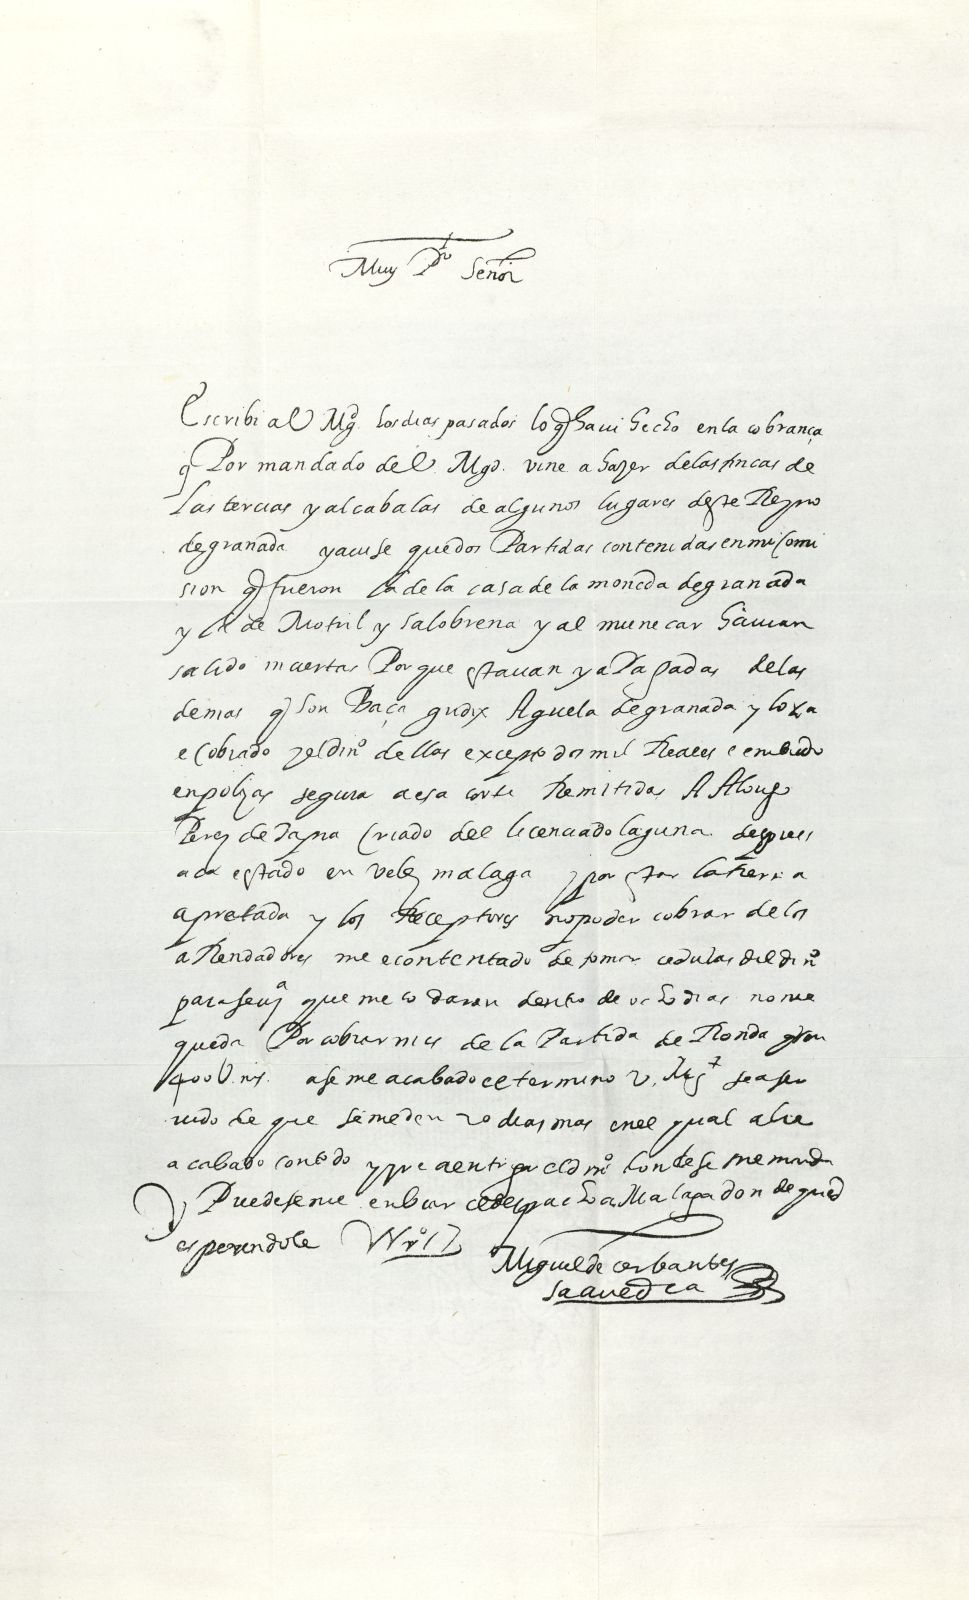 Muy P.so Señor
Escribi a V. Mgd. los dias pasados lo q̃ havi hecho en la cobrança
q̃ Por mandado de V. Mgd. vine a hazer de las fincas de
las tercias y alcabalas de algunos lugares deste Reyno
de granada y avise que dos Partidas contenidas en mi Comi
sion q̃ fueron la de la casa de la moneda de granada
y la de Motril y salobrena y almunecar havian
salido inciertas Porque estavan ya Pagadas de las
demas q̃ son Baça gudix Aguela de granada y loxa
e Cobrado y el din.o dellas excepto dos mil Reales e embiado
en polizas segura a esa corte Remitidas A Alonso
Perez de Tapia Criado del licenciado laguna despues
aca estado en Velez malaga y por estar la tierra
apretada y los Receptores no poder cobrar de los
aRendadores me e contentado de tomar cedulas del din.o
para seui.a que me lo daran dentro de ocho dias no me
queda Por cobrar mas de la Partida de Ronda q̃ son
400U mrs. a se me acabado el termino V. Mg.d sea ser
uido de que se me den 20 dias mas en el qual abre
acabado con todo y yre a entregar el din.o donde se me manda
y Puedeseme enbiar el despacho a Malaga donde quedo
esperandole
Miguel de cerbantes
saavedra